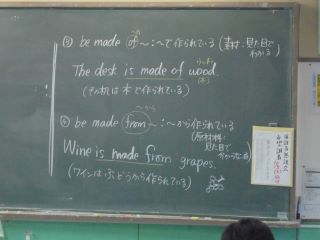 ③ be made of ~ : ~で作られている (素材:見た目でわかる)
The desk is made of wood.
(その机は木で作られている)
④ be made from ~ : ~から作られている
~から
(原材料:見た目でわからない)
Wine is made from grapes.
(ワインはぶどうから作られている)